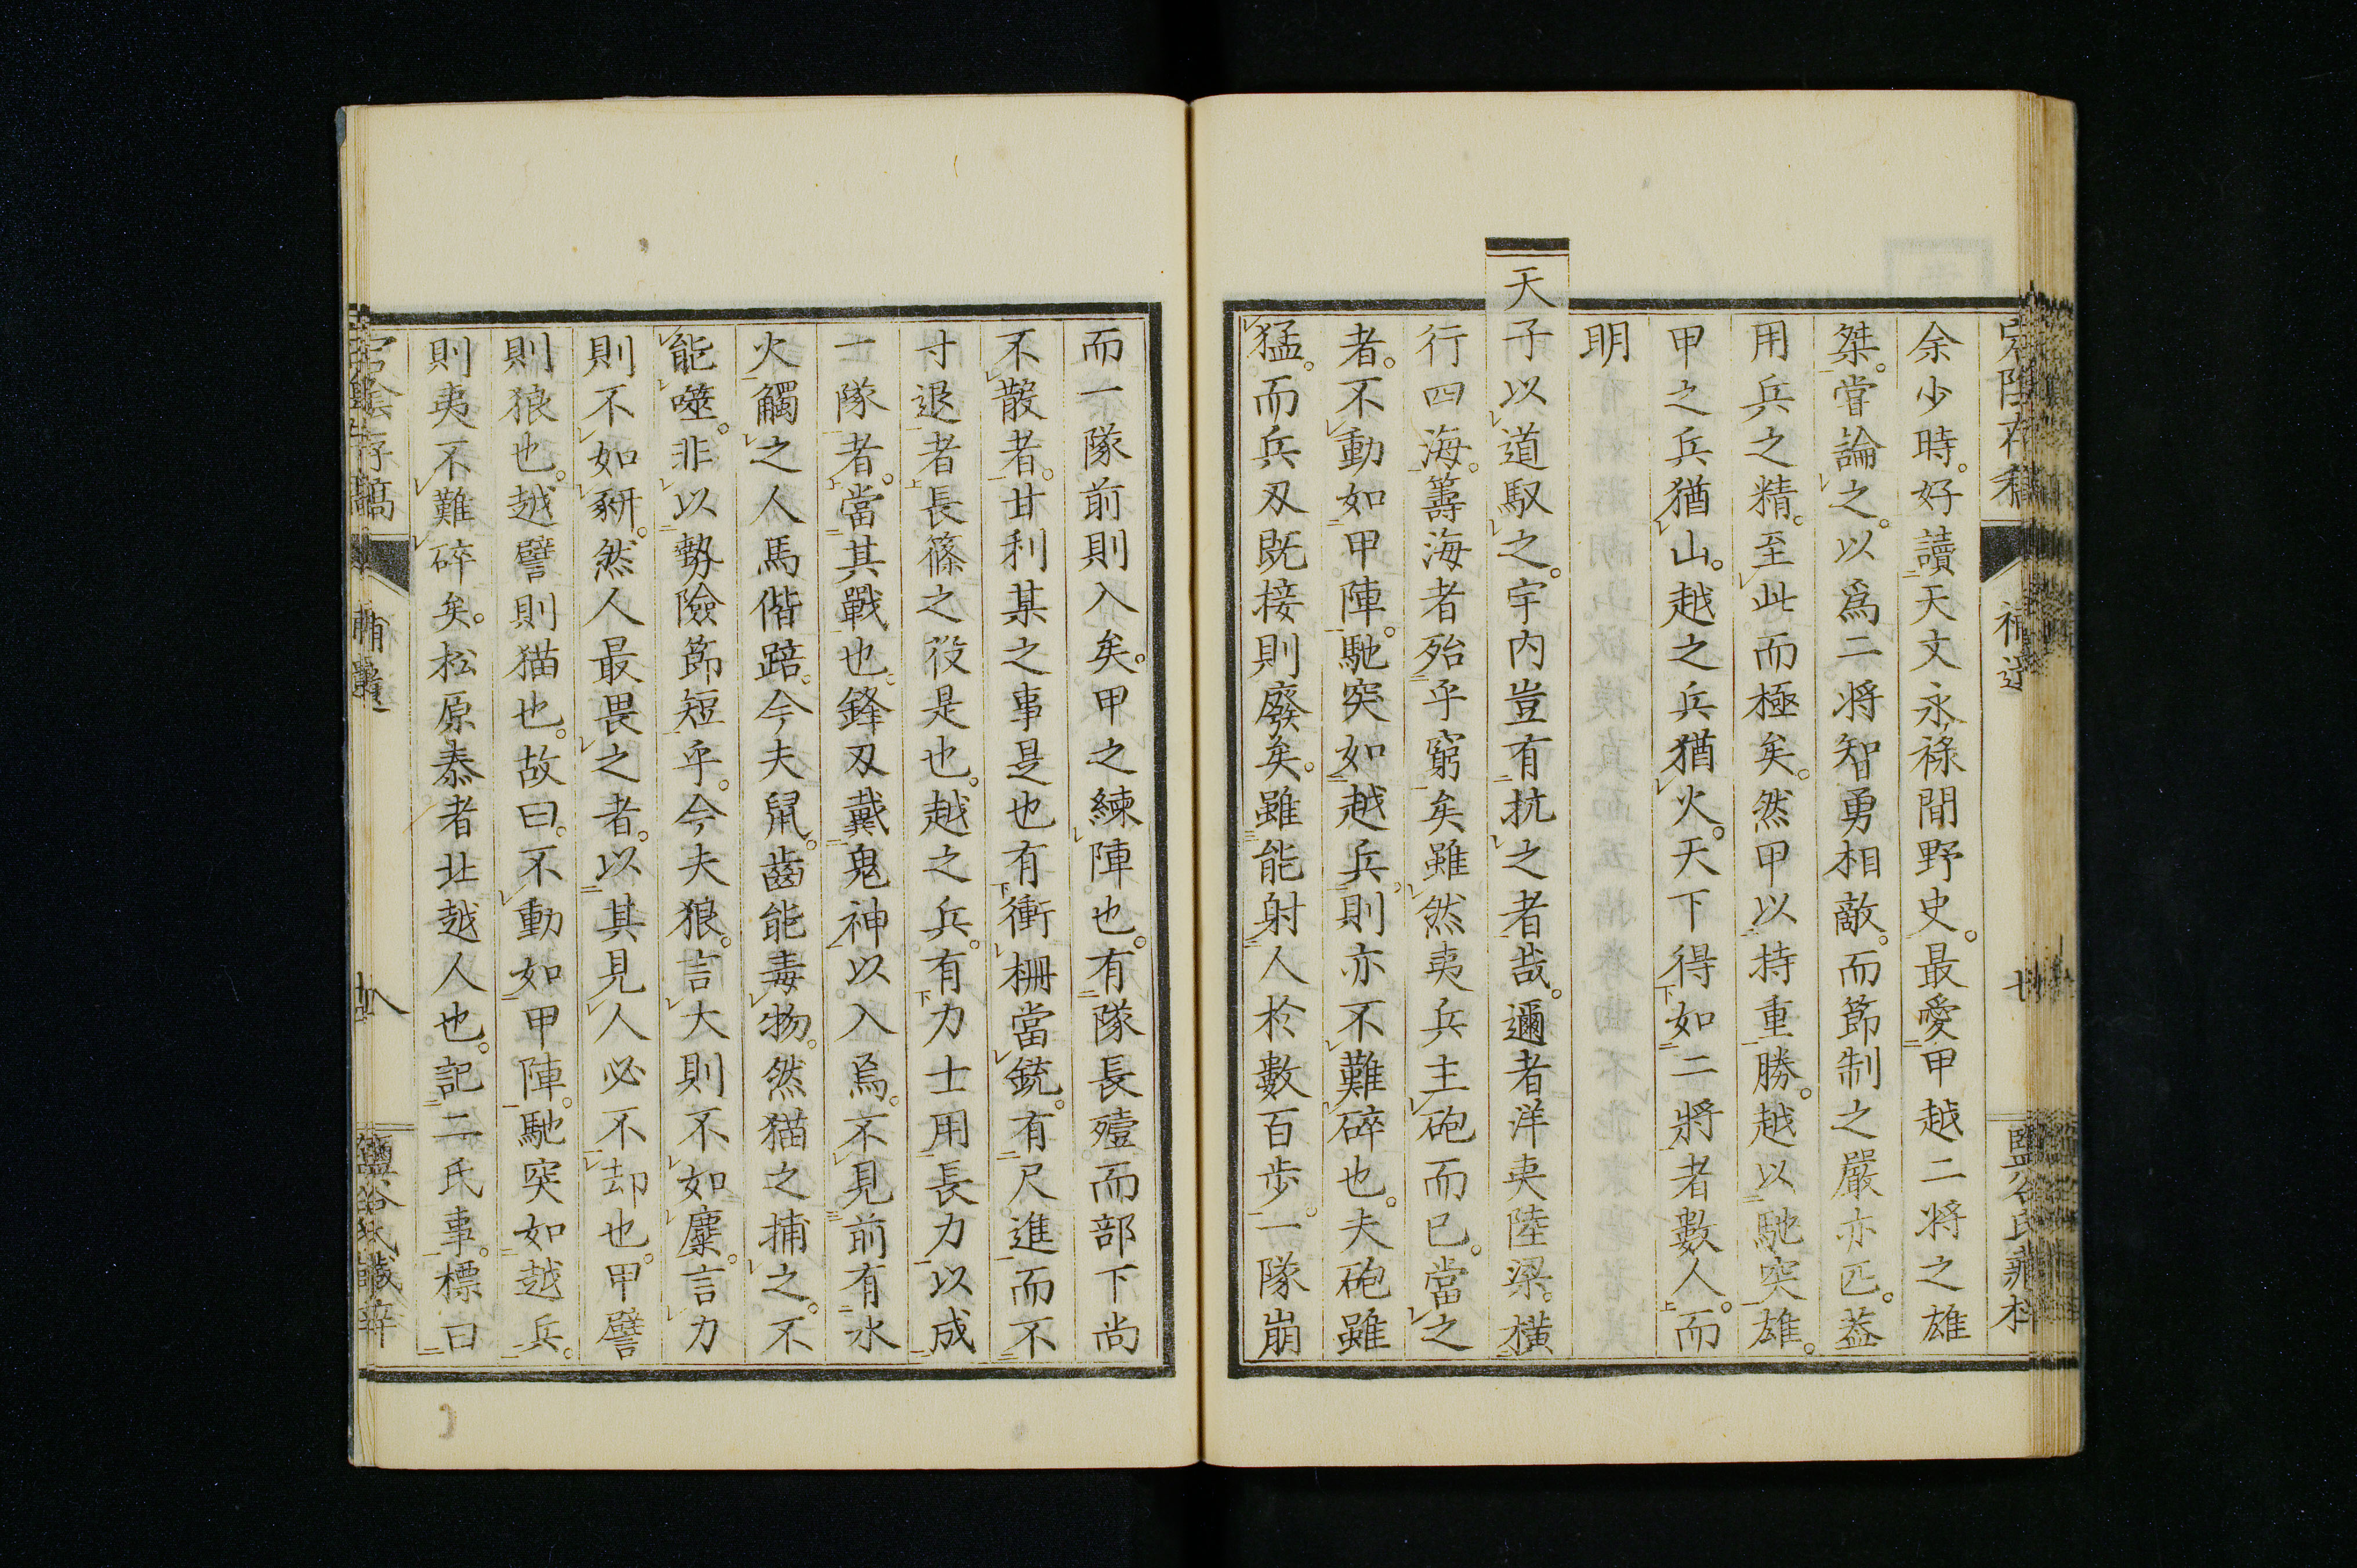 余少時。好讀天文永祿間野史。最愛甲越二將之雄
桀。嘗論之。以爲二將智勇相敵。而節制之嚴亦匹。蓋
用兵之精。至此而極矣。然甲以持重勝。越以馳突雄。
甲之兵猶山。越之兵猶火。天下得如二將者數人。而
明
天子以道馭之。宇內豈有抗之者哉。邇者洋夷陸梁。橫
行四海。籌海者殆乎窮矣雖然夷兵主砲而已。當之
者。不動如甲陣。馳突如越兵。則亦不難碎也。夫砲雖
猛。而兵刃既接則廢矣。雖能射人於數百步。一隊崩
而一隊前則入矣。甲之練陣也。有隊長殪而部下尚
不散者。甘利某之事是也有衝柵當銃。有尺進而不
寸退者長篠之役是也。越之兵。有力士用長力以成
一隊者。當其戰也。鋒刃戴鬼神以入焉。不見前有水
火觸之人馬偕踣。今夫鼠。齒能毒物。然猫之捕之。不
能噬。非以勢險節短乎。今夫狼。言大則不如麋。言力
則不如豜。然人最畏之者。以其見人必不却也。甲譬
則狼也。越譬則猫也。故曰。不動如甲陣。馳突如越兵。
則夷不難碎矣。松原泰者北越人也。記二氏事。標曰
宕陰存稿
補遺
十八
鹽谷氏藏梓